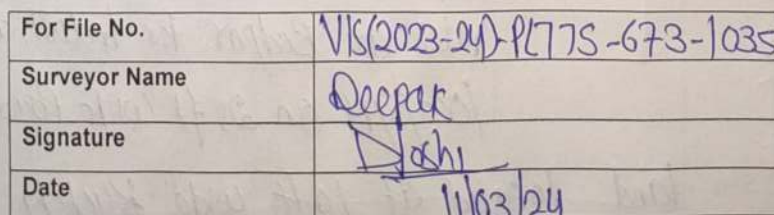 For File No. VIS(2023-24)-PL775-673-1035
Surveyor Name Deepak
Signature DJoshi
Date 11/03/24